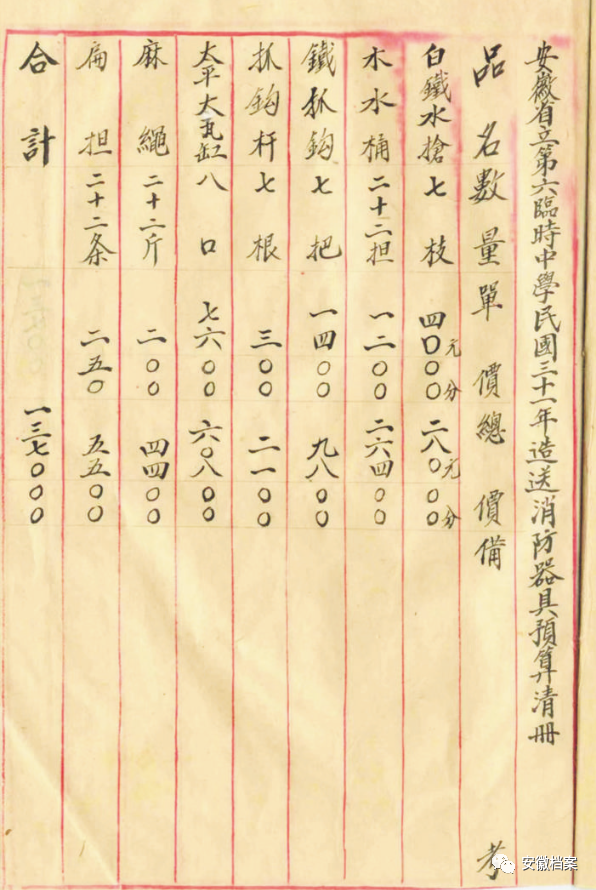 安徽省立第六臨時中學民國三十一年造送消防器具預算清冊
品名數量單價總價備考
白鐵水槍七枝 四〇元〇〇分 二八〇元〇〇分
木水桶二十二担 一二〇〇 二六四〇〇
鐵抓鈎七把 一四〇〇 九八〇〇
抓鈎杆七根 三〇〇 二一〇〇
太平大瓦缸八口 七六〇〇 六〇八〇〇
麻繩二十二斤 二〇〇 四四〇〇
扁担二十二条 二五〇 五五〇〇
合計 一三七〇〇〇
安徽档案